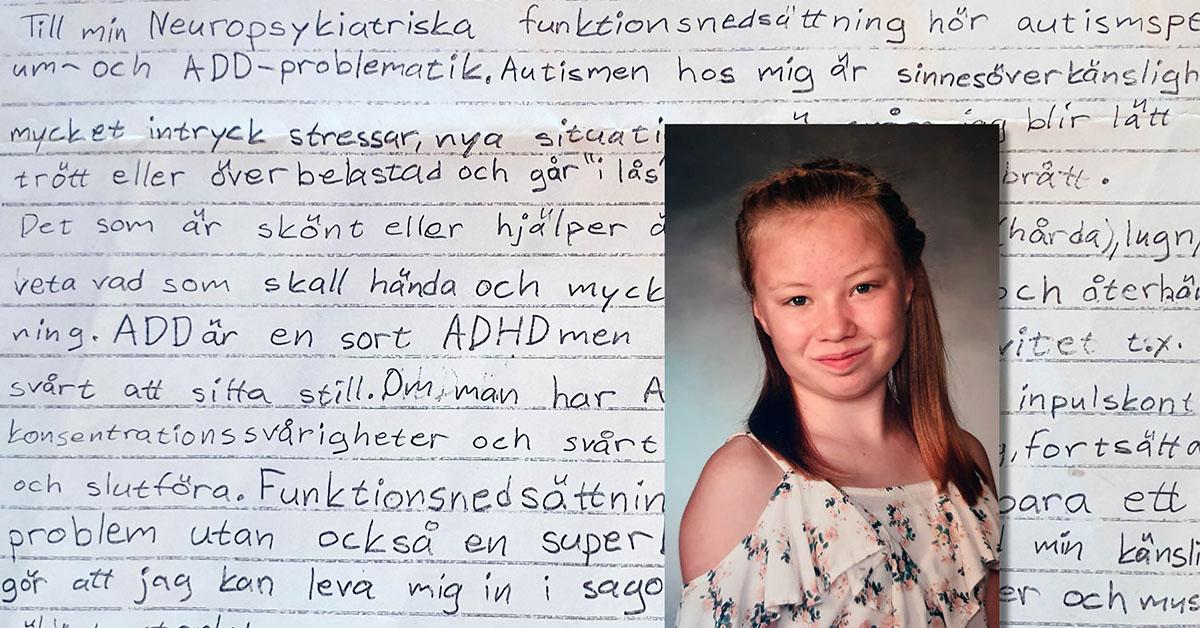 Till min Neuropsykiatriska funktionsnedsättning hör autismspe
um- och ADD-problematik. Autismen hos mig är sinnesöverkänsligh
mycket intryck stressar, nya situati jag blir lätt
trött eller överbelastad och går "i lås brått.
Det som är skönt eller hjälper (hårda), lugn
veta vad som skall hända och myck och återhä
ning. ADD är en sort ADHD men vitet t.x.
svårt att sitta still. Om man har A inpulskont
konsentrationssvårigheter och svårt , fortsätta
och slutföra. Funktionsnedsättnin bara ett
problem utan också en super min känsli
gör att jag kan leva mig in i sago er och mus